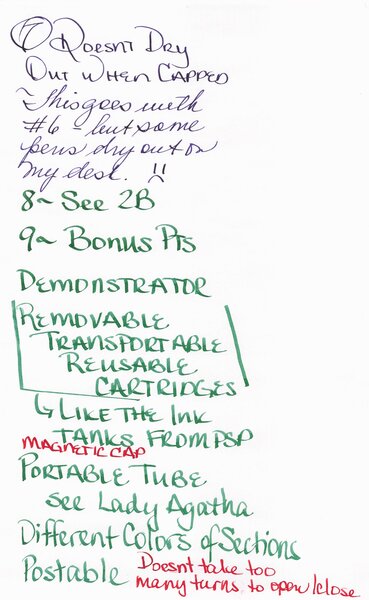 7 Doesnt Dry
Out When Capped
~This goes with
#6 - but some
pens dry out on
my desk. !!
8~ See 2B
9~ Bonus Pts
Demonstrator
Removable
Transportable
Reusable
Cartridges
↳ Like the Ink
Tanks From PSP
Magnetic Cap
Portable Tube
see Lady Agatha
Different Colors of Sections
Postable Doesnt take too
many turns to open/close